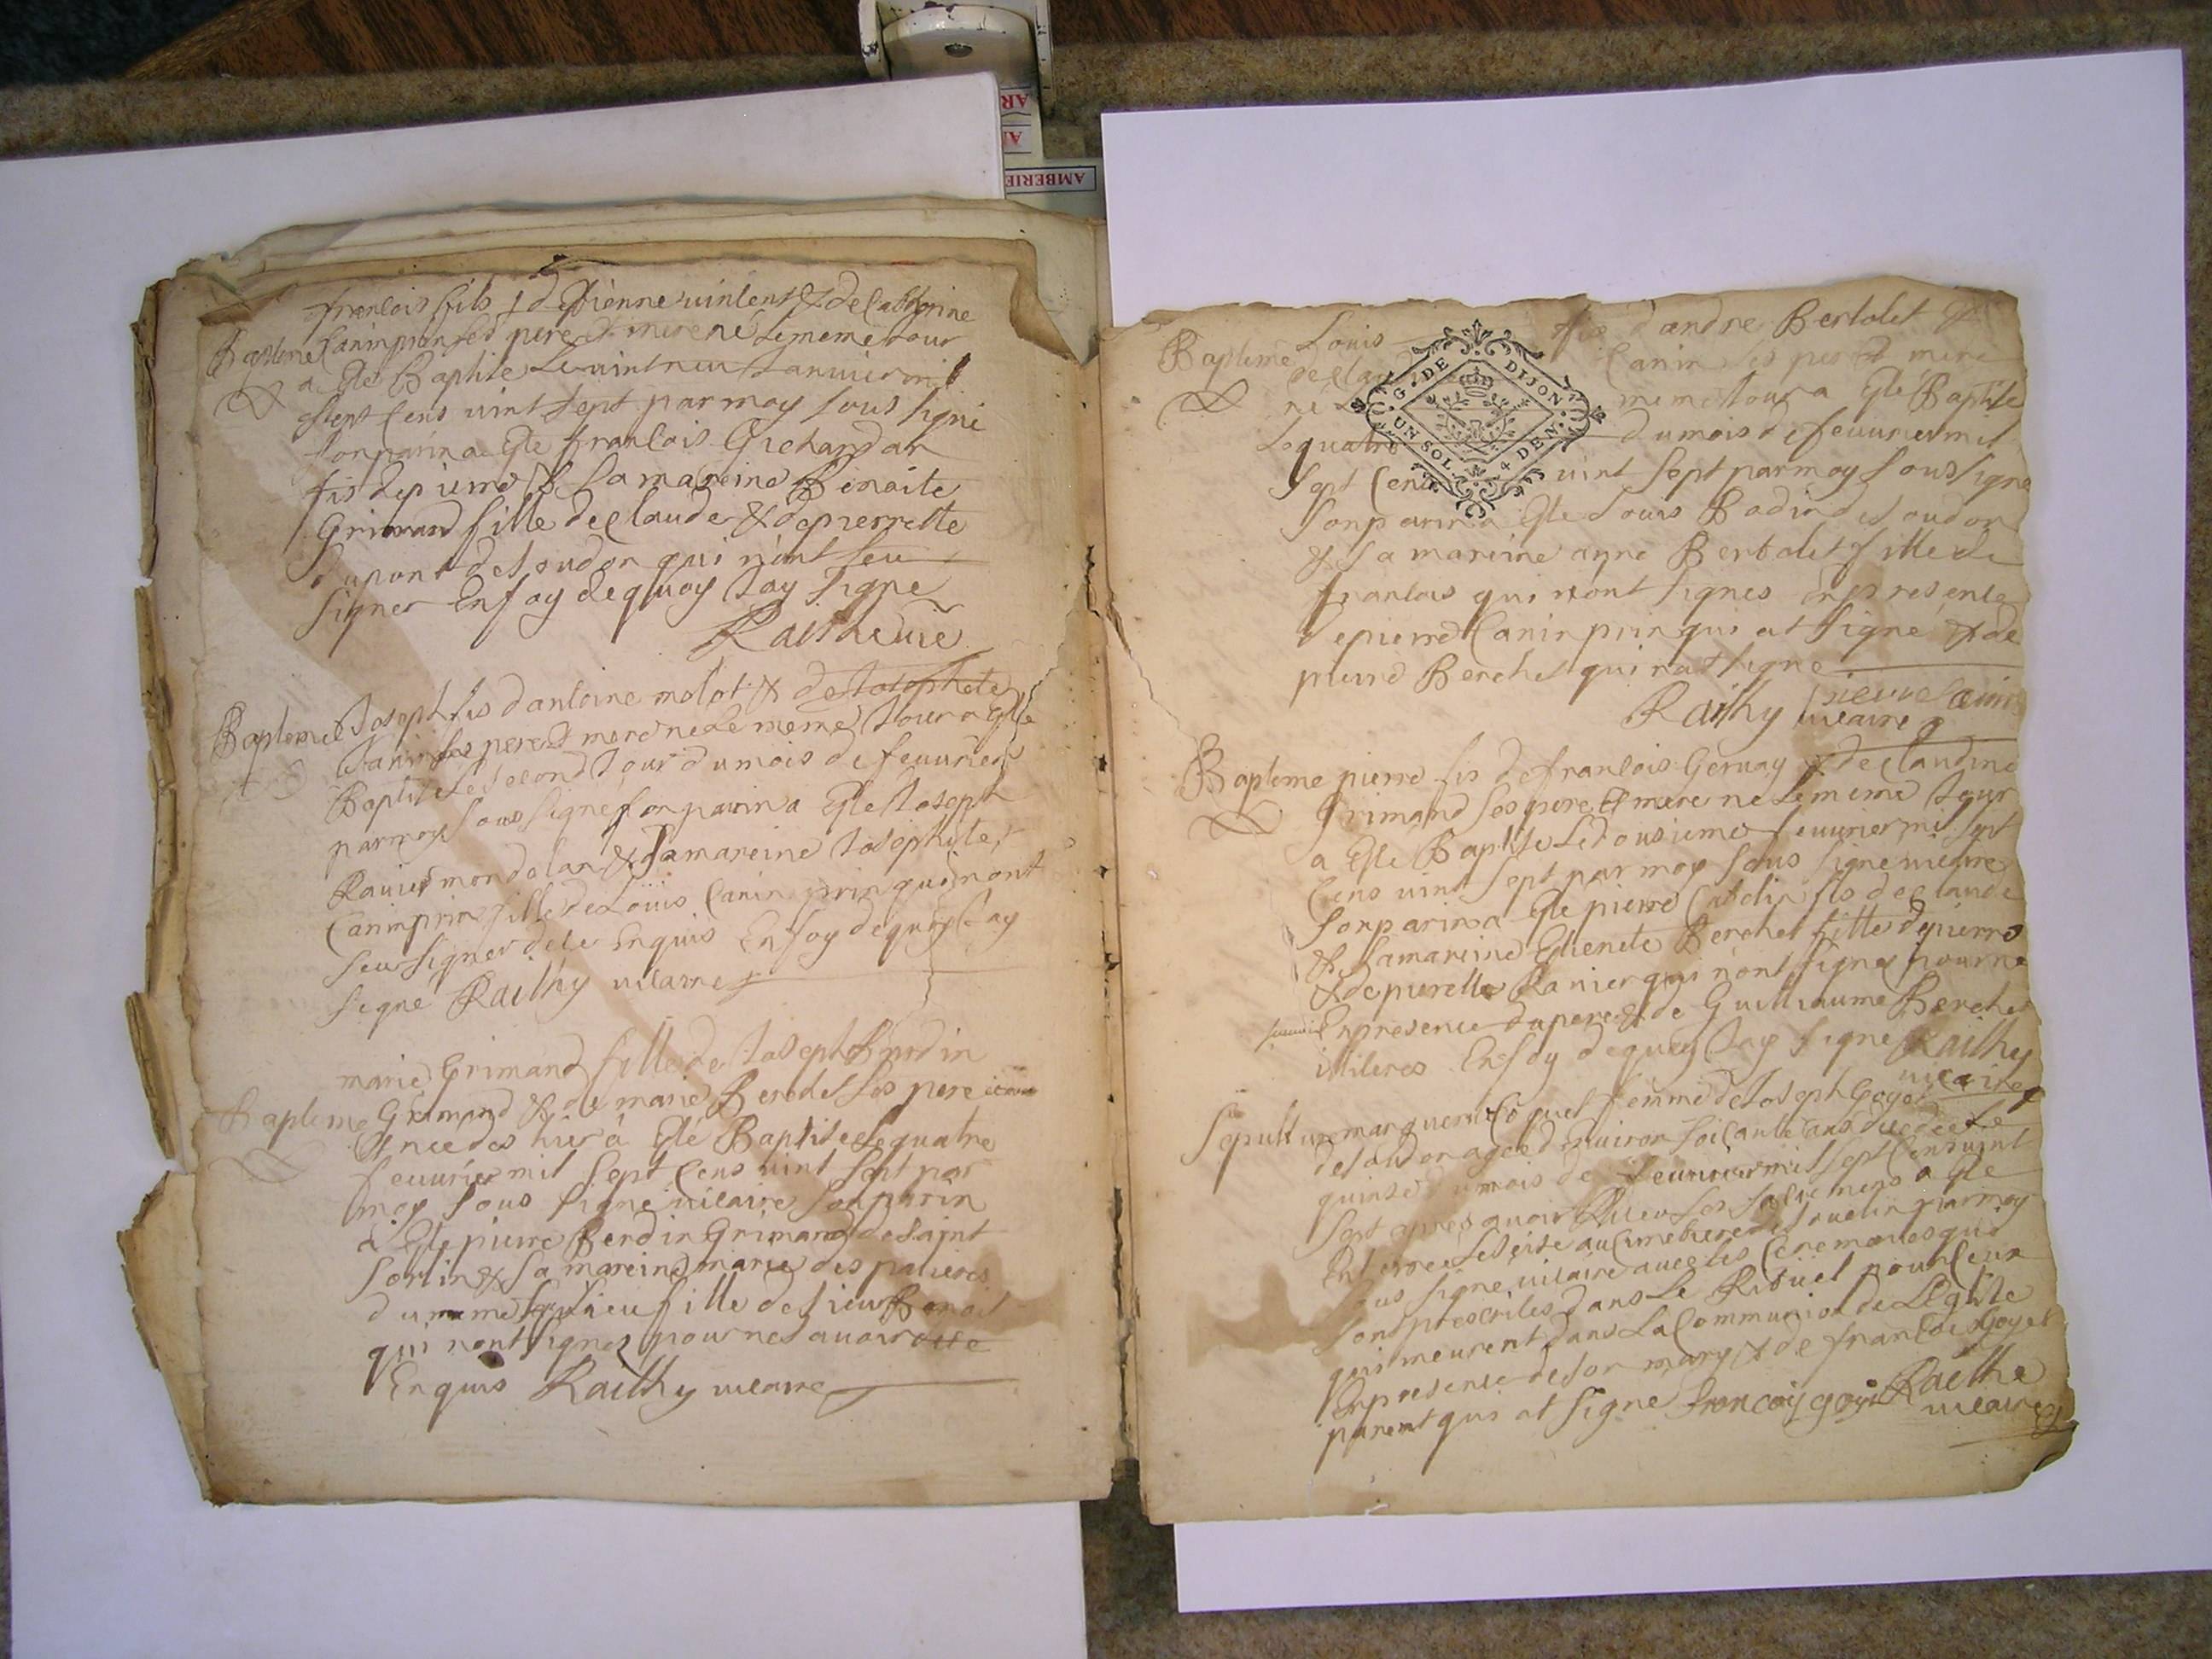 francois fils d Estienne vincent & de Catherine
Bapteme Caninprin ses pere & mere né le meme Jour
a Este Baptise le vint neuf Januier mil
sept Cens vint sept par moy sous signé
son parin a Este francois
fis de pierre & sa mareine Benoite
Grimand fille de claude & de pierrette
dupont de soudon qui n'ont seu
signer En foy de quoy Jay signe
Raithy vic
Bapteme Joseph fis d antoine molot & de Josephete
Canin ses pere & mere né le meme Jour a Este
Baptise le second Jour du mois de feuurier
par moy sous signé son parin a Este Joseph
Rauier & sa mareine Josephete
Caninprin fille de Loüis Caninprin qui nont
seu signer de ce Enquis En foy de quoy Jay
signé Raithy vicaire
marie Grimand fille de Joseph Berdin
Bapteme Grimand & de marie Berchet ses pere
& née des hier à Esté Baptisée le quatre
feuurier mil sept Cens vint sept par
moy sous signé vicaire son parin
a Este pierre Berdin Grimand de saint
sorlin & sa mareine marie des pauieres
du meme lieu fille de sieur Benoit
qui nont signes pour ne sauoir de ce
Enquis Raithy vicaire
Louis fis d andre Bertolet &
Bapteme de clau Canin ses pere & mere
né meme Jour a Esté Baptise
Le quatre du mois de feuurier mil
sept Cens vint sept par moy sous signe
son parin a Este Louis Bodin de soudon
& sa mareine anne Bertolet fille de
francois qui n'ont signes En presence
de pierre Caninprin qui at signé & de
pierre Berchet qui na signe
Raithy vicaire
G. DE DIJON.
UN SOL. 4 DEN.
Bapteme pierre fis de francois Geruay & de claudine
Grimand ses pere & mere né le meme Jour
a Este Baptise le dousieme feuurier mil sept
Cens vint sept par moy sous signé vicaire
son parin a Este pierre fis de claude
& sa mareine Etienete Berchet fille de pierre
& de pierrette Ranier qui n'ont signes pour ne
En presence du pere & de Guilliaume Berchet
illiteres En foy de quoy Jay signe Raithy
vicaire
Sepulture marguerite femme de Joseph Goyet
de soudon agée d enuiron soisante ans decedée le
quinse du mois de feuurier mil sept Cens vint
sept apres auoir Receu ses sacremens a Este
Enterree le seise au Cimetiere de par moy
sous signe vicaire auec les Ceremonies qui
sont prescrites dans le Rituel pour Ceux
qui meurent dans La Communion de L Eglise
En presence de son mary & de francois Goyet
parent qui at signe francois goyet Raithe
vicaire
AMBERIE